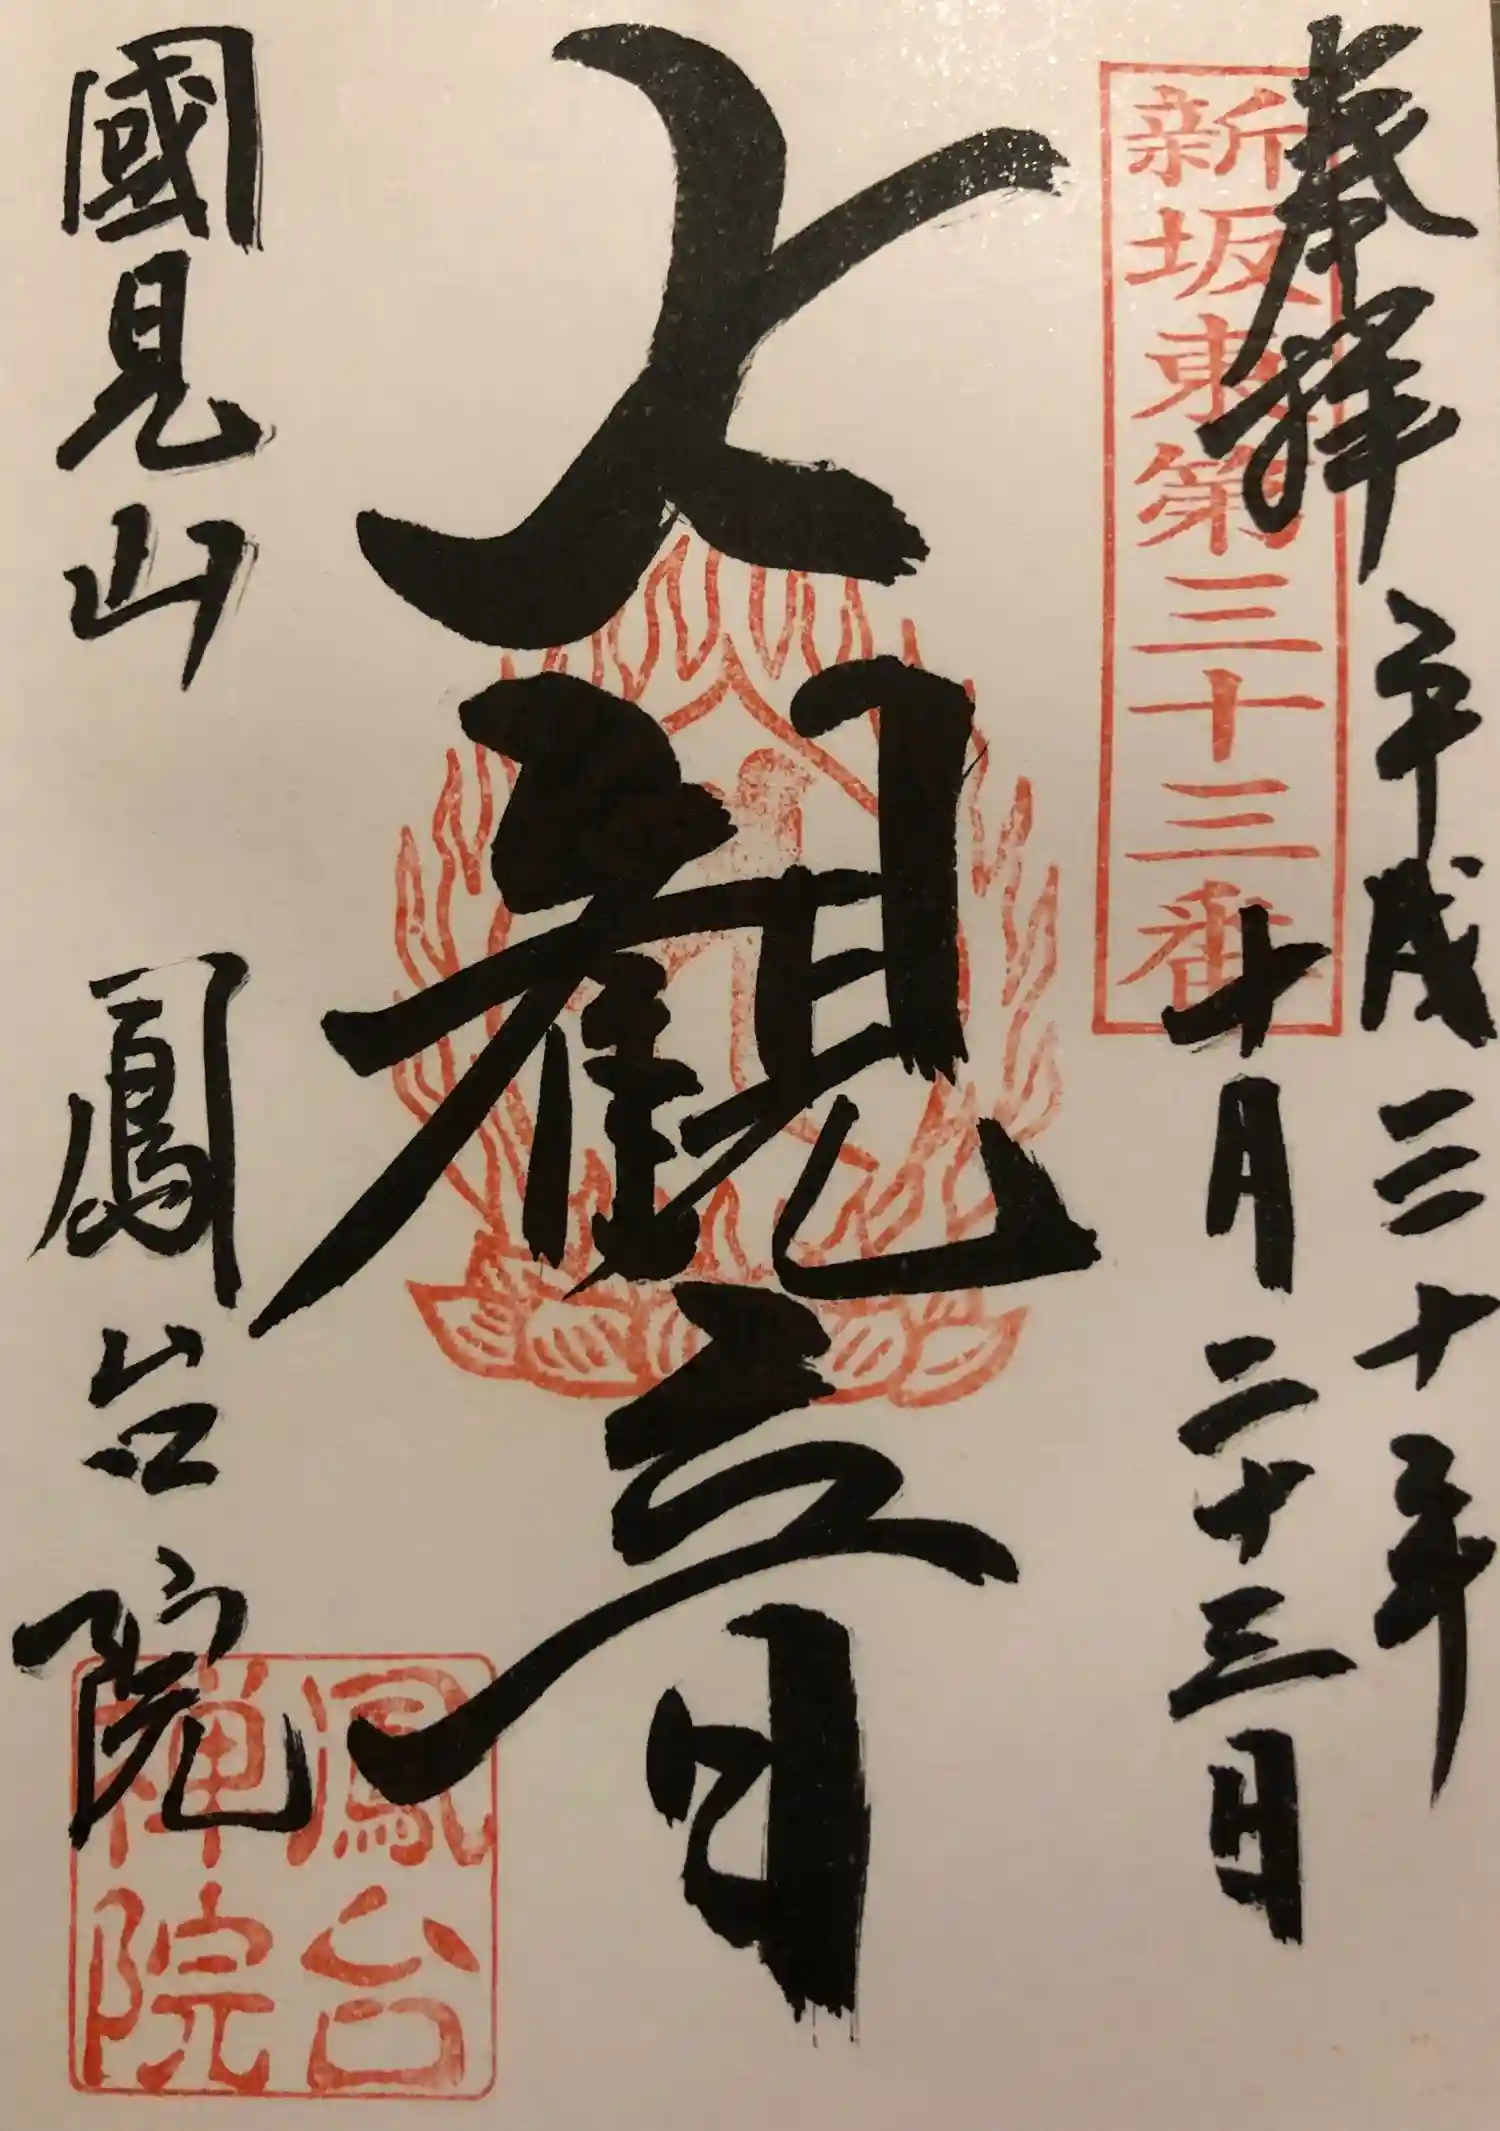 奉拝 平成三十年
十月二十三日
新坂東第三十三番
大観音
國見山 鳳台院
鳳台
禅院